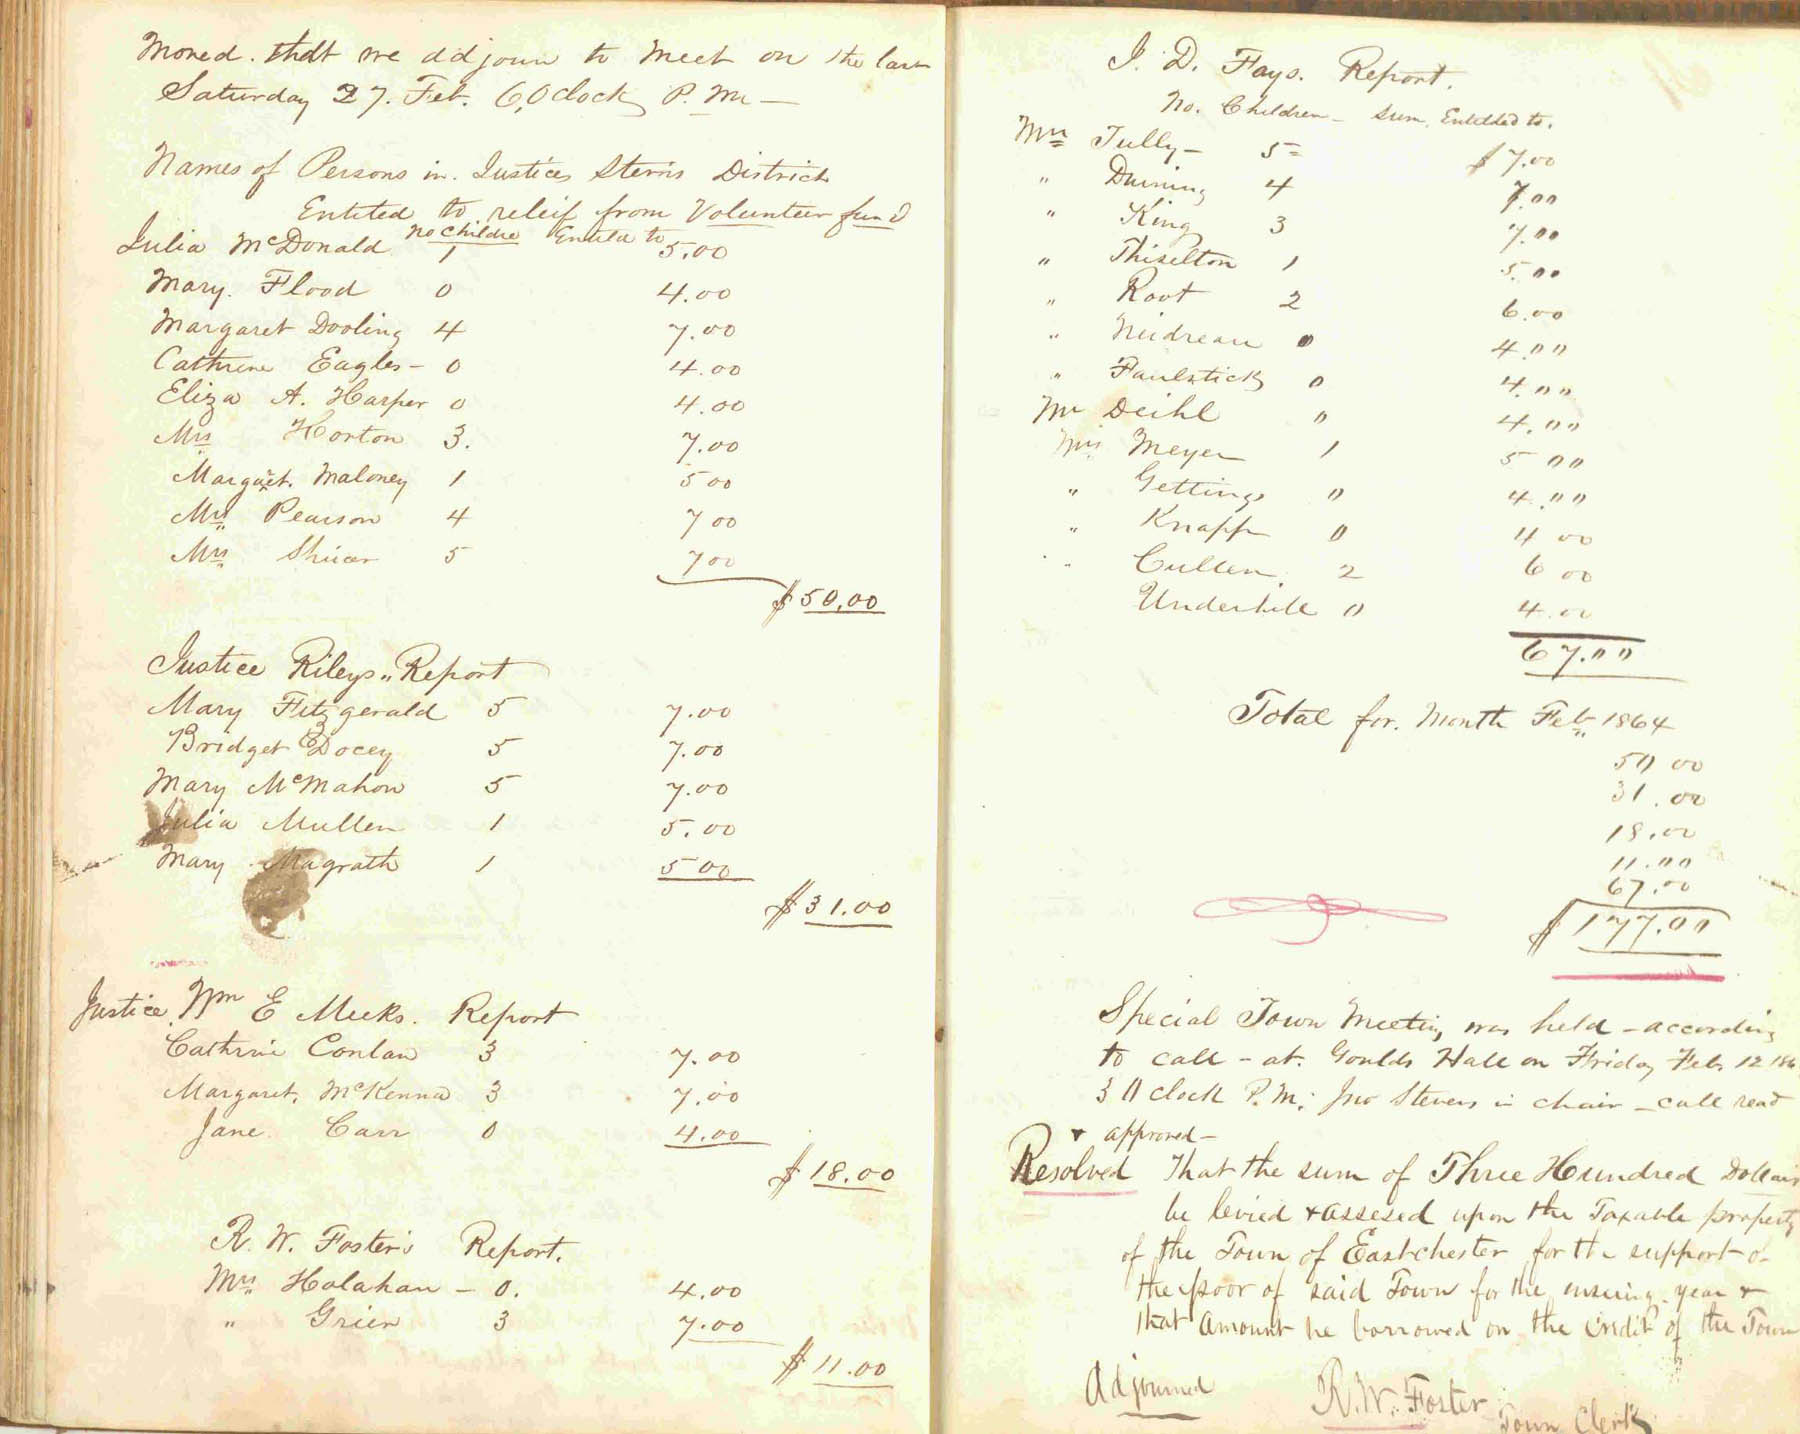 Moved. that we adjourn to meet on the last
Saturday 27. Feb. 6, Oclock P. M. —
Names of Persons in Justices Sterns District
Entited to releif from Volunteer fund
No Childre Entitld to
Julia McDonald 1 5.00
Mary. Flood 0 4.00
Margaret Dooling 4 7.00
Cathrine Eagles – 0 4.00
Eliza A. Harper 0 4.00
Mrs Horton 3. 7.00
Margaret. Maloney 1 5 00
Mrs Pearson 4 7 00
Mrs 5 7 00
$ 50,00
Justice Rileys,, Report
Mary Fitzgerald 5 7.00
Bridget Docey 5 7.00
Mary McMahon 5 7.00
Julia Mullen 1 5.00
Mary Magrath 1 5 00
$ 31.00
Justice. Wm E Meeks. Report
Cathrine Conlan 3 7.00
Margaret. McKenna 3 7.00
Jane Carr 0 4.00
$ 18.00
R. W. Foster's Report.
Mrs Holahan – 0. 4.00
" Grier 3 7.00
$ 11.00
I. D. Fays. Report.
No. Children – sum. Entitled to.
Mrs Tully – 5 = $ 7.00
" 4 7.00
" King 3 7.00
" Thiselton 1 5.00
" Root 2 6.00
" 0 4.00
" Faulstick 0 4.00
Mr Deihl " 4.00
Mrs Meyer 1 5 00
" Gettings 0 4.00
" Knapp 0 4 00
" Cullen. 2 6 00
Underhill 0 4.00
67.00
Total for. Month Feb 1864
50 00
31.00
18.00
11.00
67.00
$ 177.00
Special Town Meeting was held – according
to call – at. Goulds Hall on Friday Feb, 12 186
3 O clock P. M; Jno Stevens in chair – call read
+ approved –
Resolved That the sum of Three Hundred Dollars
be levied + assesed upon the Taxable property
of the Town of Eastchester for the support of
the poor of said Town for the ensuing year +
that amount be borrowed on the credit of the Town
Adjourned R. W. Foster
Town Clerk